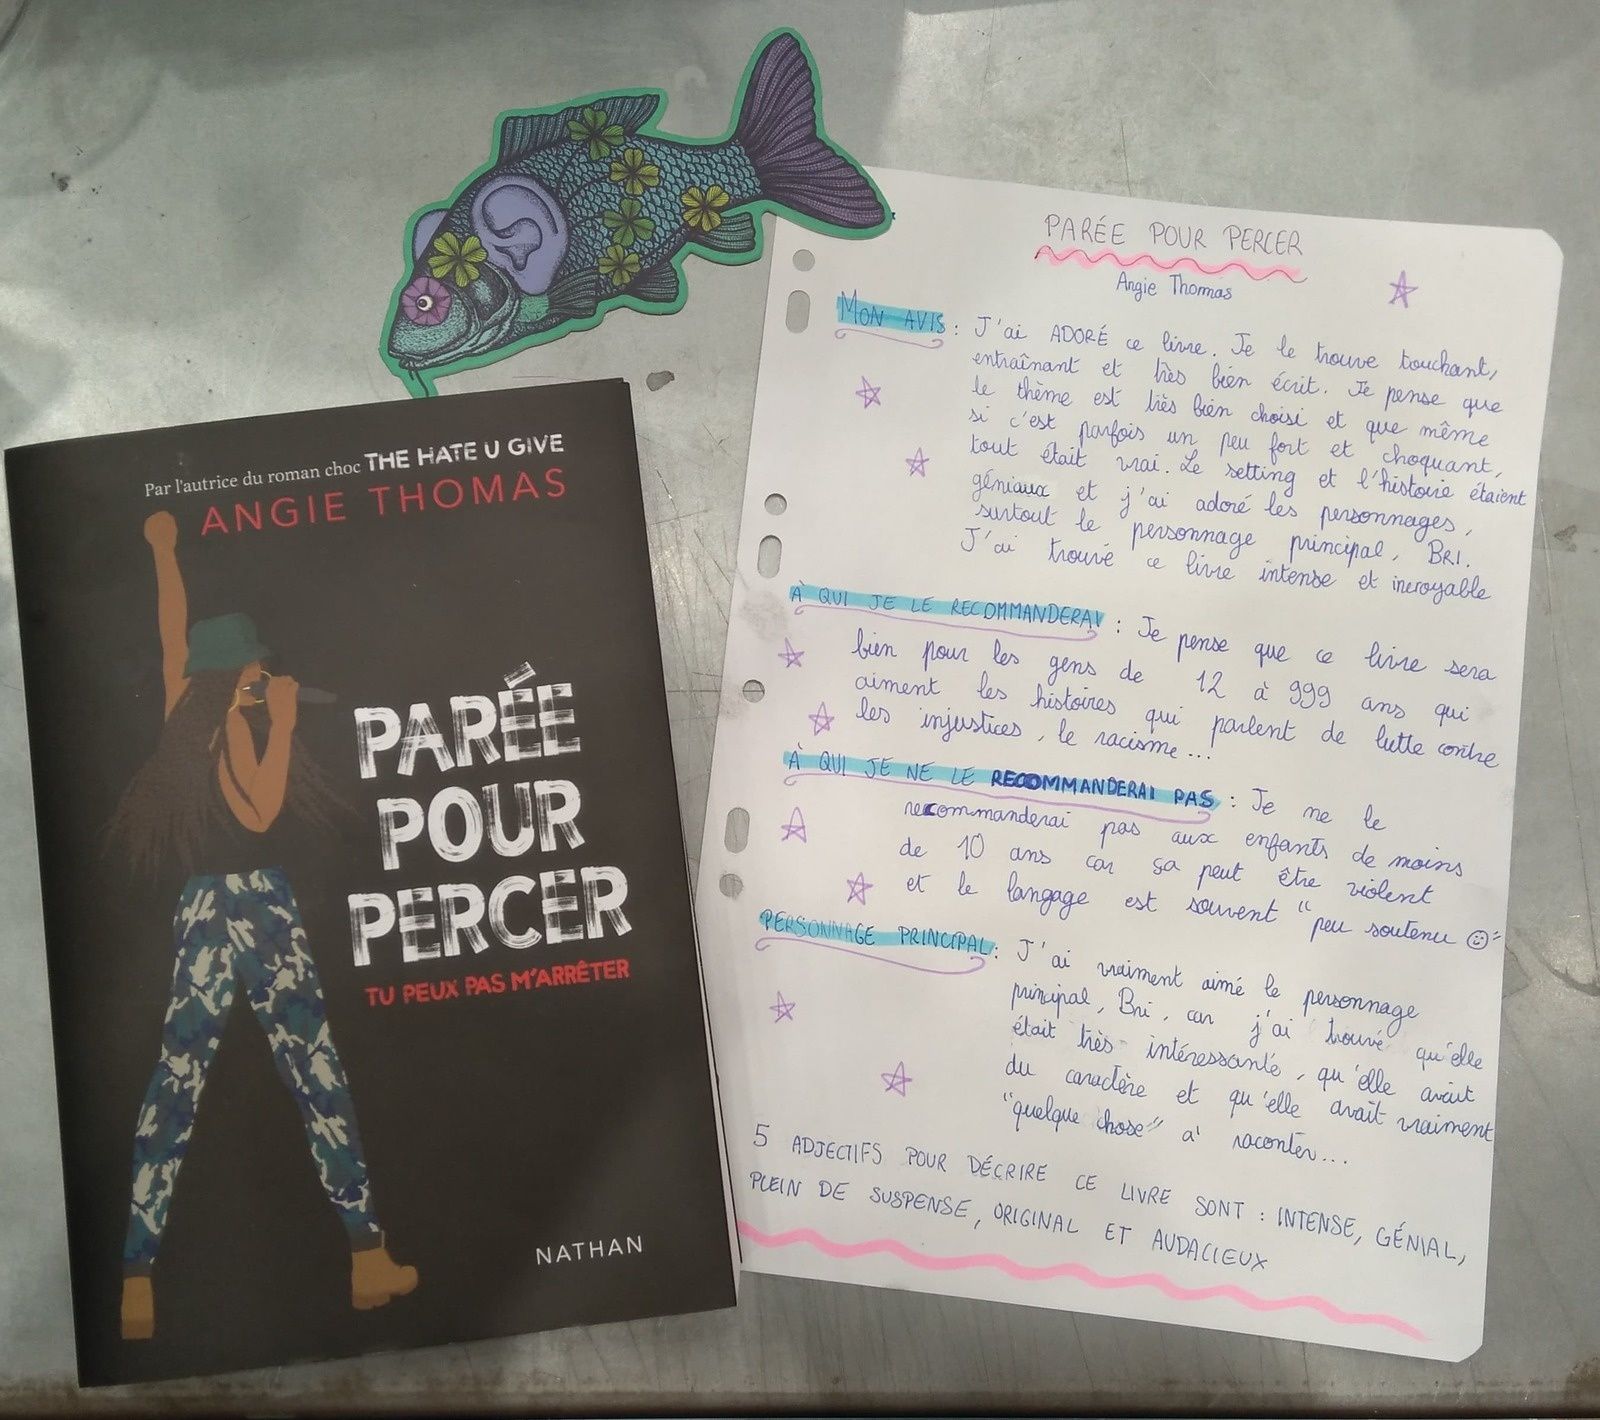 Par l'autrice du roman choc THE HATE U GIVE
ANGIE THOMAS
PARÉE
POUR
PERCER
TU PEUX PAS M'ARRÊTER
NATHAN
PARÉE POUR PERCER
Angie Thomas
MON AVIS : J'ai ADORÉ ce livre. Je le trouve touchant,
entraînant et très bien écrit. Je pense que
le thème est très bien choisi et que même
si c'est parfois un peu fort et choquant,
tout était vrai. Le setting et l'histoire étaient
géniaux et j'ai adoré les personnages,
surtout le personnage principal, BRI.
J'ai trouvé ce livre intense et incroyable
À QUI JE LE RECOMMANDERAI : Je pense que ce livre sera
bien pour les gens de 12 à 999 ans qui
aiment les histoires qui parlent de lutte contre
les injustices, le racisme...
À QUI JE NE LE RECOMMANDERAI PAS : Je ne le
recommanderai pas aux enfants de moins
de 10 ans car ça peut être violent
et le langage est souvent "peu soutenu ☺"
PERSONNAGE PRINCIPAL : J'ai vraiment aimé le personnage
principal, Bri, car j'ai trouvé qu'elle
était très intéressante, qu'elle avait
du caractère et qu'elle avait vraiment
"quelque chose" à raconter...
5 ADJECTIFS POUR DÉCRIRE CE LIVRE SONT : INTENSE, GÉNIAL,
PLEIN DE SUSPENSE, ORIGINAL ET AUDACIEUX